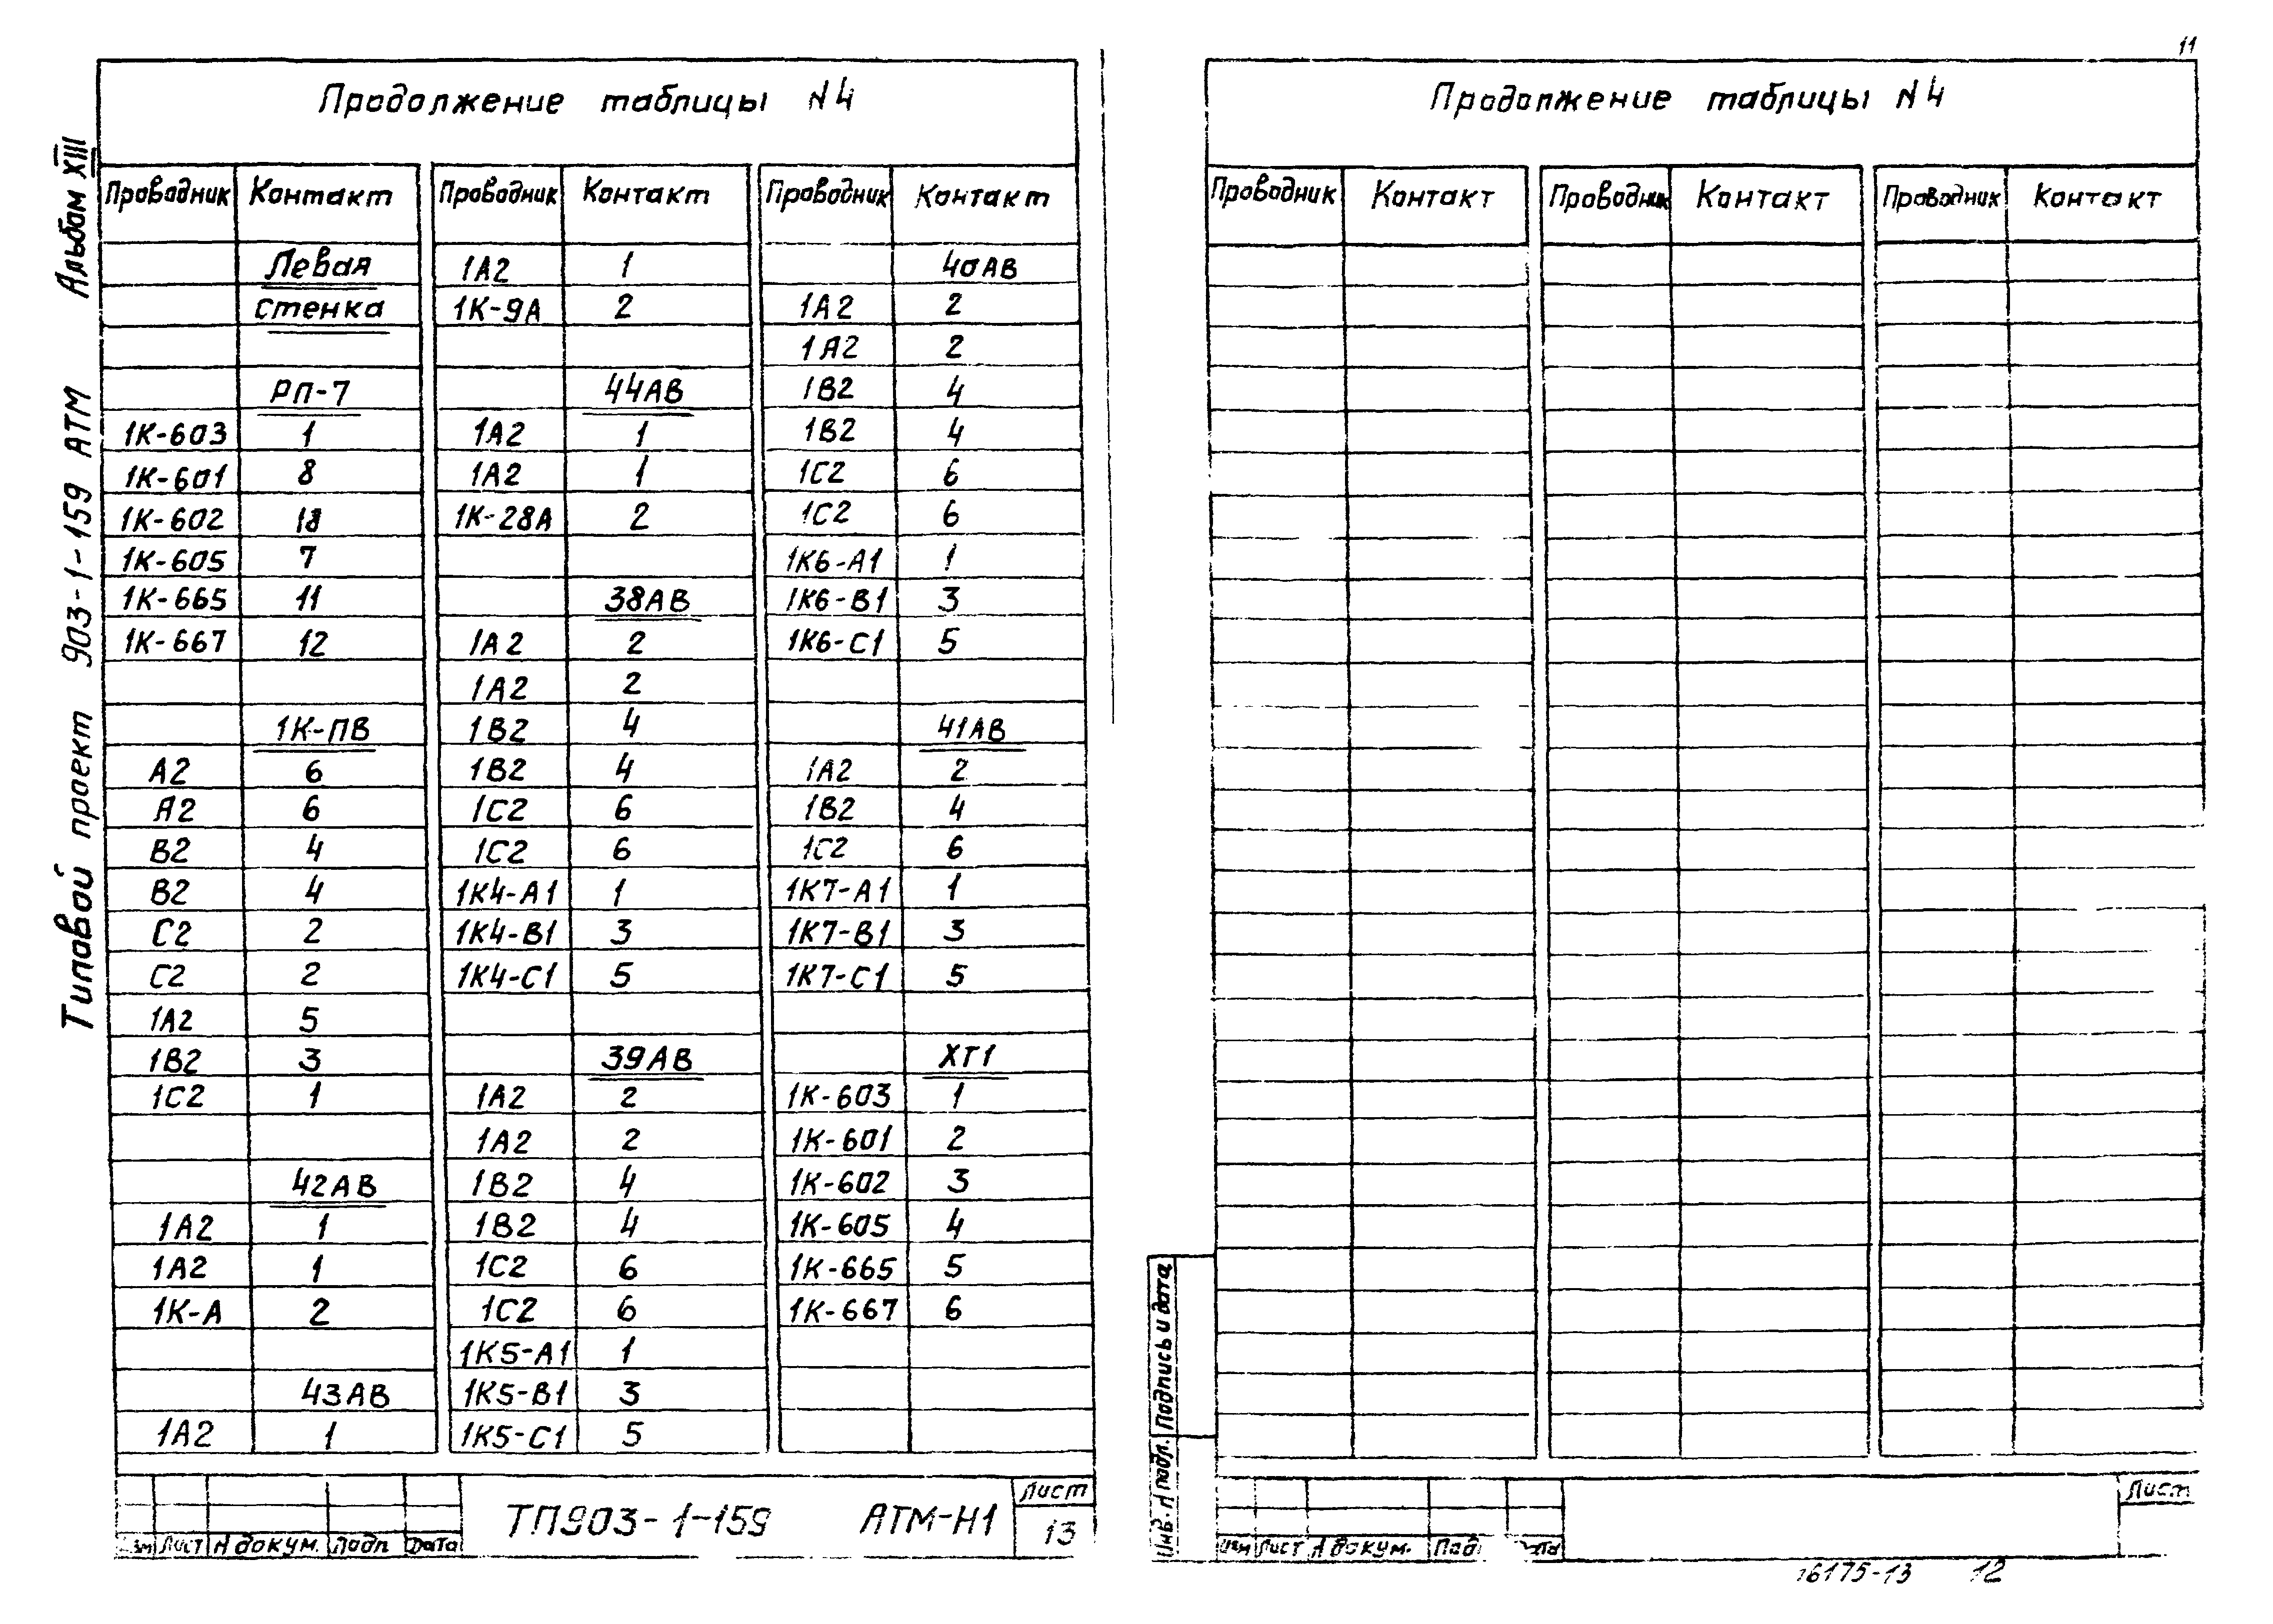 11
Альбом XIII
Типовой проект 903-1-159 АТМ
Продолжение таблицы N4
Проводник Контакт Проводник Контакт Проводник Контакт
Левая 1А2 1 40АВ
стенка 1К-9А 2 1А2 2
1А2 2
РП-7 44АВ 1В2 4
1К-603 1 1А2 1 1В2 4
1К-601 8 1А2 1 1С2 6
1К-602 18 1К-28А 2 1С2 6
1К-605 7 1К6-А1 1
1К-665 11 38АВ 1К6-В1 3
1К-667 12 1А2 2 1К6-С1 5
1А2 2
1К-ПВ 1В2 4 41АВ
А2 6 1В2 4 1А2 2
А2 6 1С2 6 1В2 4
В2 4 1С2 6 1С2 6
В2 4 1К4-А1 1 1К7-А1 1
С2 2 1К4-В1 3 1К7-В1 3
С2 2 1К4-С1 5 1К7-С1 5
1А2 5
1В2 3 39АВ ХТ1
1С2 1 1А2 2 1К-603 1
1А2 2 1К-601 2
42АВ 1В2 4 1К-602 3
1А2 1 1В2 4 1К-605 4
1А2 1 1С2 6 1К-665 5
1К-А 2 1С2 6 1К-667 6
1К5-А1 1
43АВ 1К5-В1 3
1А2 1 1К5-С1 5
Лист
ТП903-1-159 АТМ-Н1 13
Лист N докум. Подп Дата
Продолжение таблицы N4
Проводник Контакт Проводник Контакт Проводник Контакт
Подпись и дата
Инв. N подл.
Лист
Изм Лист N докум.
16175-13 12